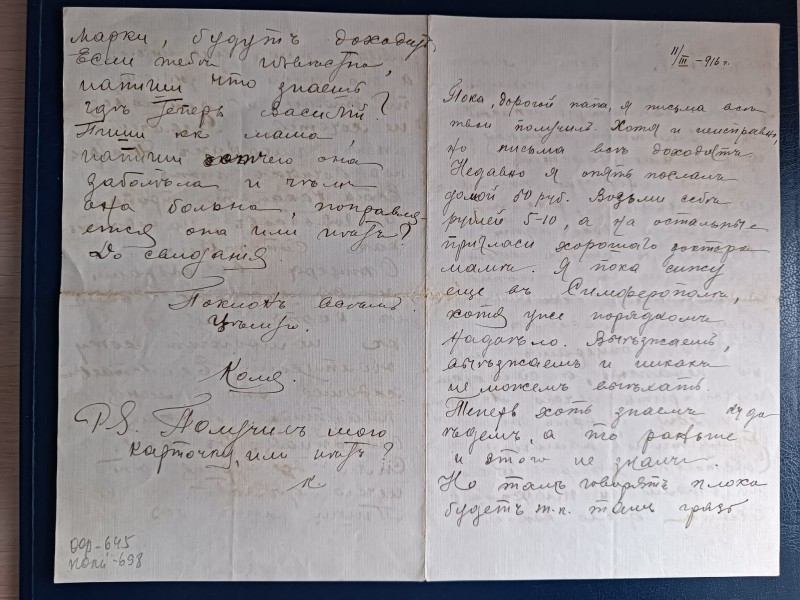 11/III - 916 г.
Пока, дорогой папа, я письма всѣ
твои получилъ. Хотя и неисправно,
но письма всѣ доходятъ.
Недавно я опять послалъ
домой 50 руб. Возьми себѣ
рублей 5-10, а на остальные
пригласи хорошаго доктора
мамѣ. Я пока сижу
еще въ Симферополѣ,
хотя уже порядкомъ
надоѣло. Выѣзжаемъ,
выѣзжаемъ и никакъ
не можемъ выѣхать.
Теперь хоть знаемъ куда
ѣдемъ, а то раньше
и этого не знали.
Но тамъ говорятъ плохо
будетъ т.к. тамъ грязь
марки, будутъ доходить.
Если тебѣ извѣстно,
напиши что знаешь
гдѣ теперь Василій?
Пиши какъ мама,
напиши отчего она
заболѣла и чѣмъ
она больна, поправля-
ется она или нѣтъ?
До свиданія.
Поклонъ всѣмъ.
Цѣлую.
Коля.
PS. Получилъ мою
карточку, или нѣтъ?
К
ООР-645
НОПИ-698